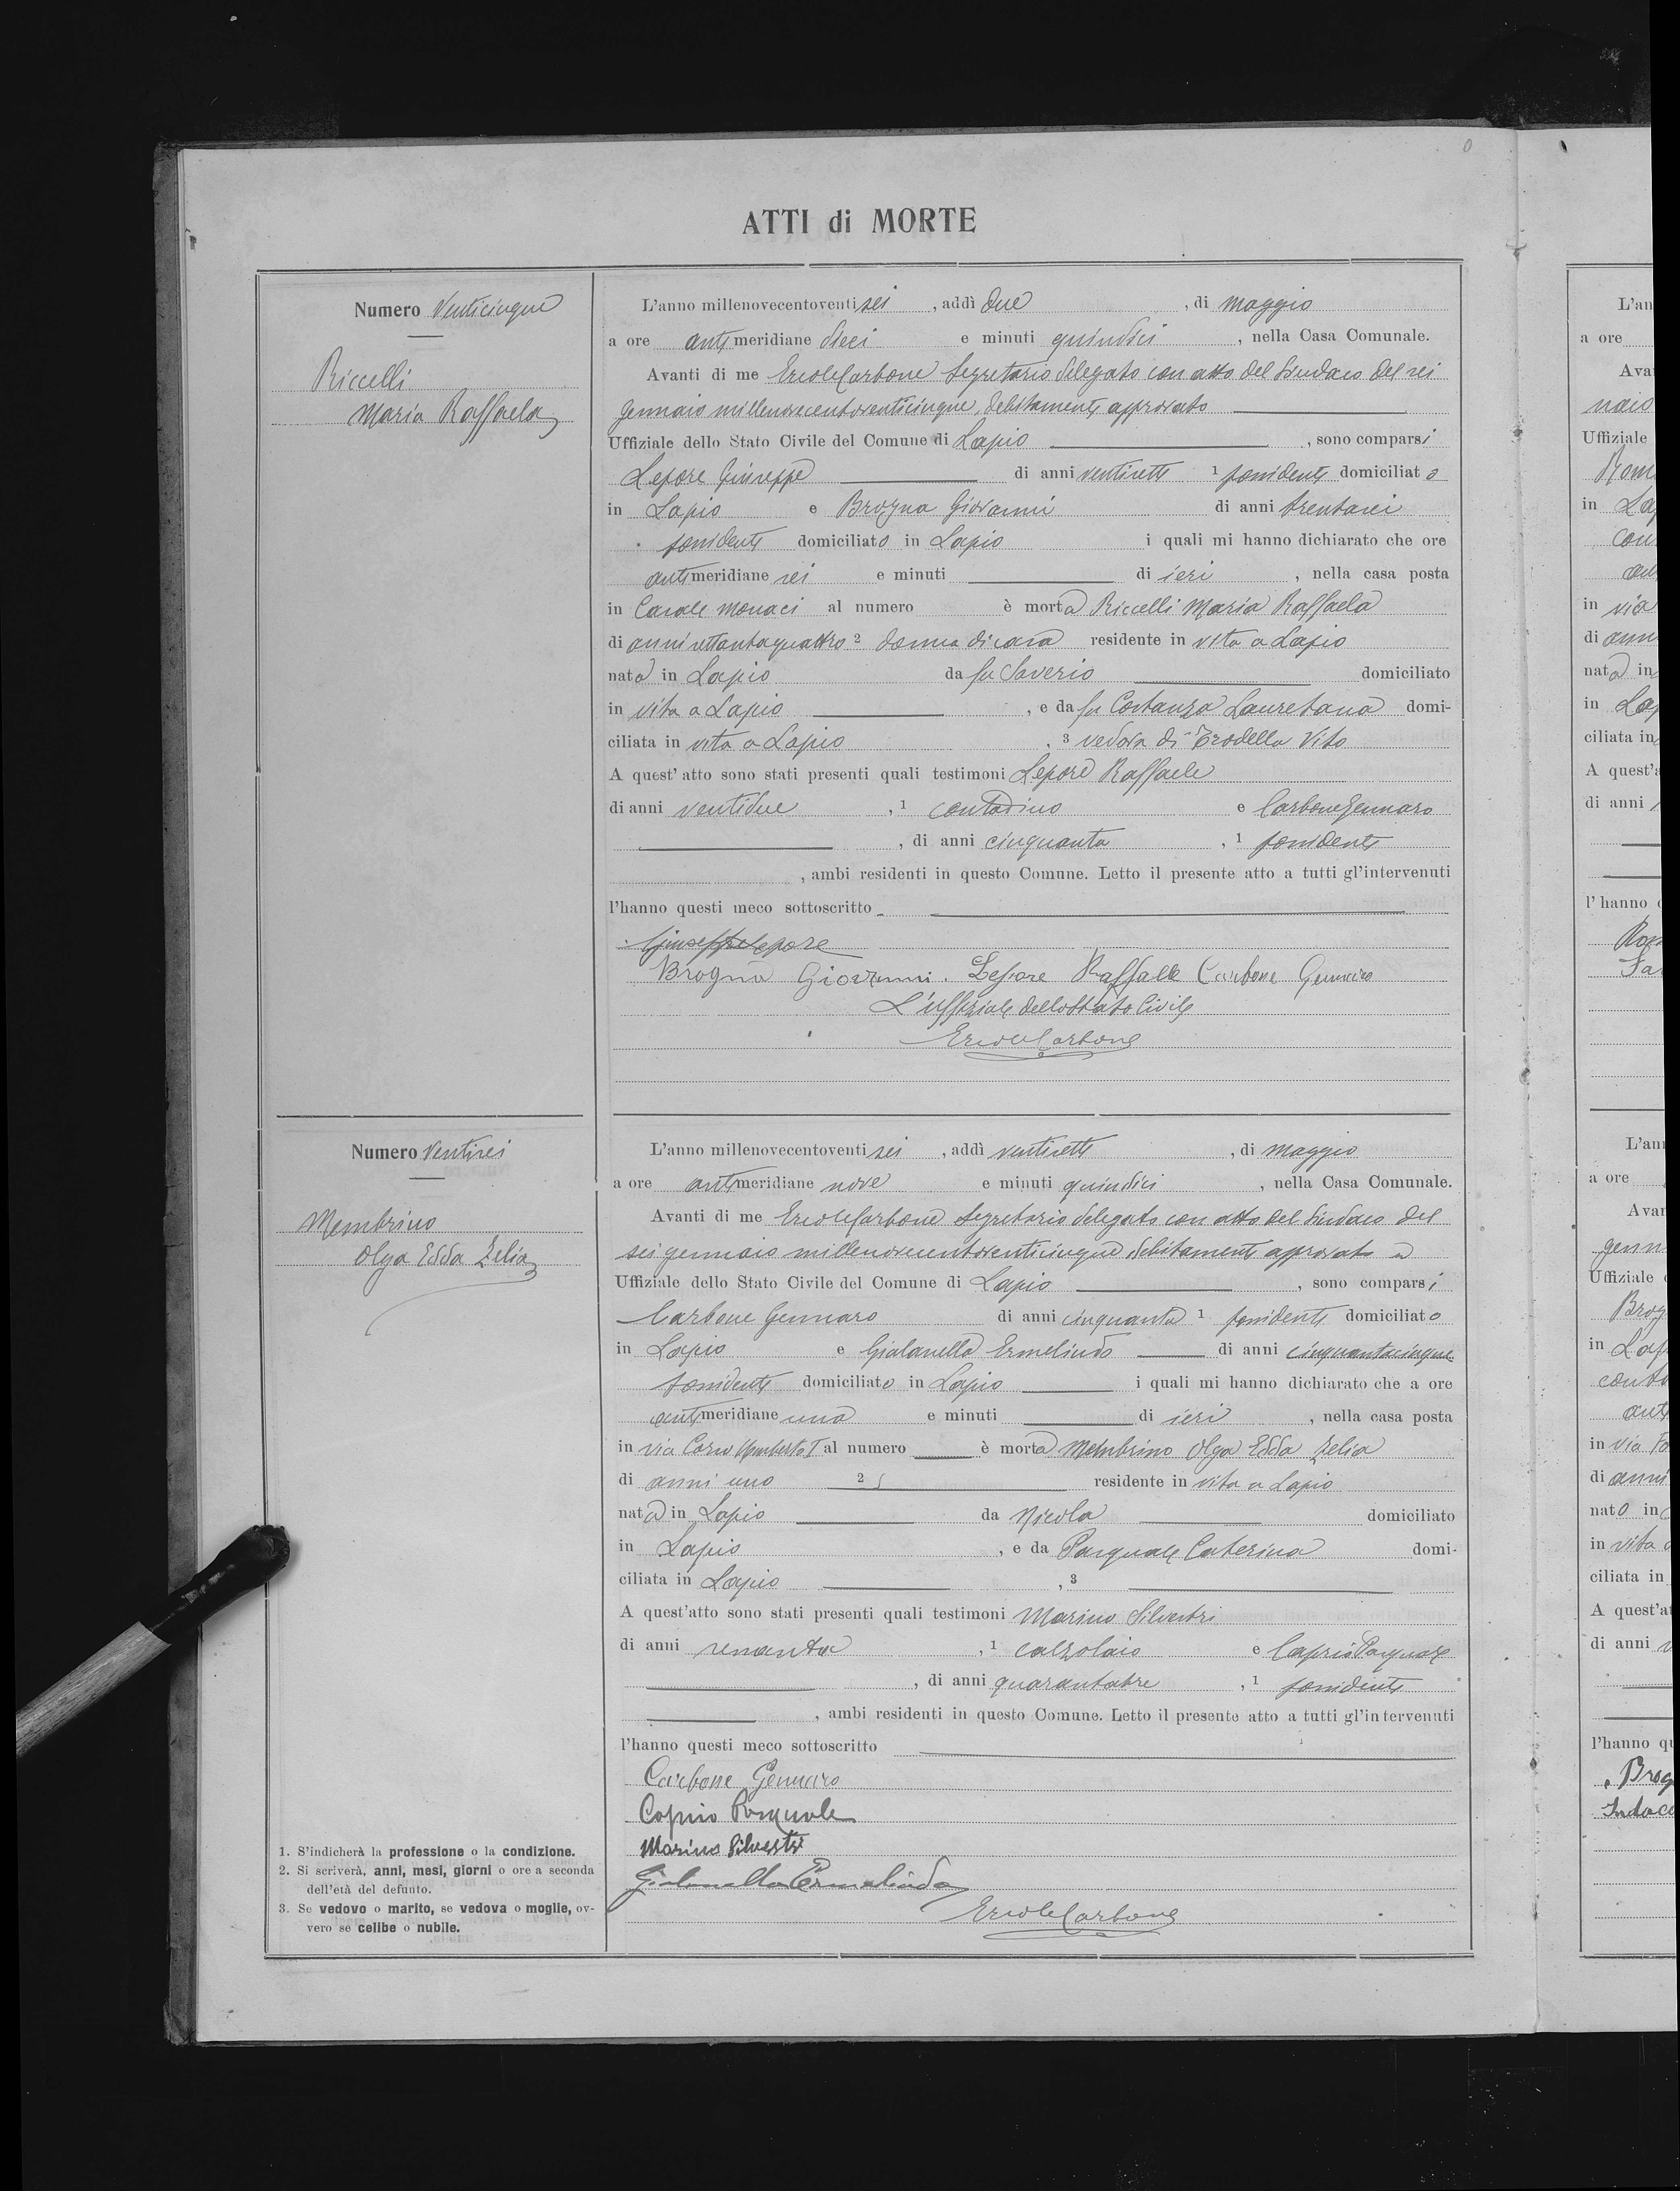 ATTI di MORTE
Numero Venticinque
Riccelli
Maria Raffaela
L'anno millenovecentoventi sei, addì due, di maggio
a ore antimeridiane dieci e minuti quindici, nella Casa Comunale.
Avanti di me Ercole Carbone Segretario delegato con atto del Sindaco del sei
gennaio millenovecentoventicinque, debitamente approvato
Uffiziale dello Stato Civile del Comune di Lapio, sono comparsi
Lepore Giuseppe di anni ventisette 1 possidente domiciliato
in Lapio e Brogna Giovanni di anni trentasei
possidente domiciliato in Lapio i quali mi hanno dichiarato che ore
antimeridiane sei e minuti di ieri, nella casa posta
in Casale Monaci al numero è morta Riccelli Maria Raffaela
di anni settantaquattro 2 donna di casa residente in vita a Lapio
nata in Lapio da fu Saverio domiciliato
in vita a Lapio, e da fu Costanza Lauretana domi-
ciliata in vita a Lapio, 3 vedova di Trodella Vito
A quest'atto sono stati presenti quali testimoni Lepore Raffaele
di anni ventidue, 1 contadino e Carbone Gennaro
, di anni cinquanta, 1 possidente
, ambi residenti in questo Comune. Letto il presente atto a tutti gl'intervenuti
l'hanno questi meco sottoscritto
Giuseppe Lepore
Brogna Giovanni. Lepore Raffaele Carbone Gennaro
L'uffiziale dello Stato Civile
Ercole Carbone
Numero Ventisei
Membrino
Olga Edda Zelia
L'anno millenovecentoventi sei, addì ventisette, di maggio
a ore antimeridiane nove e minuti quindici, nella Casa Comunale.
Avanti di me Ercole Carbone Segretario delegato con atto del Sindaco del
sei gennaio millenovecentoventicinque debitamente approvato
Uffiziale dello Stato Civile del Comune di Lapio, sono comparsi
Carbone Gennaro di anni cinquanta 1 possidente domiciliato
in Lapio e Gialanella Ermelindo di anni cinquantacinque
possidente domiciliato in Lapio i quali mi hanno dichiarato che a ore
antimeridiane una e minuti di ieri, nella casa posta
in via Corso Umberto I al numero è morta Membrino Olga Edda Zelia
di anni uno 2 residente in vita a Lapio
nata in Lapio da Nicola domiciliato
in Lapio, e da Pasquale Caterina domi-
ciliata in Lapio, 3
A quest'atto sono stati presenti quali testimoni Marino Silvestri
di anni sessanta, 1 calzolaio e Caprio Pasquale
, di anni quarantatre, 1 possidente
, ambi residenti in questo Comune. Letto il presente atto a tutti gl'intervenuti
l'hanno questi meco sottoscritto
Carbone Gennaro
Caprio Pasquale
Marino Silvestri
Gialanella Ermelindo
Ercole Carbone
1. S'indicherà la professione o la condizione.
2. Si scriverà, anni, mesi, giorni o ore a seconda
dell'età del defunto.
3. Se vedovo o marito, se vedova o moglie, ov-
vero se celibe o nubile.